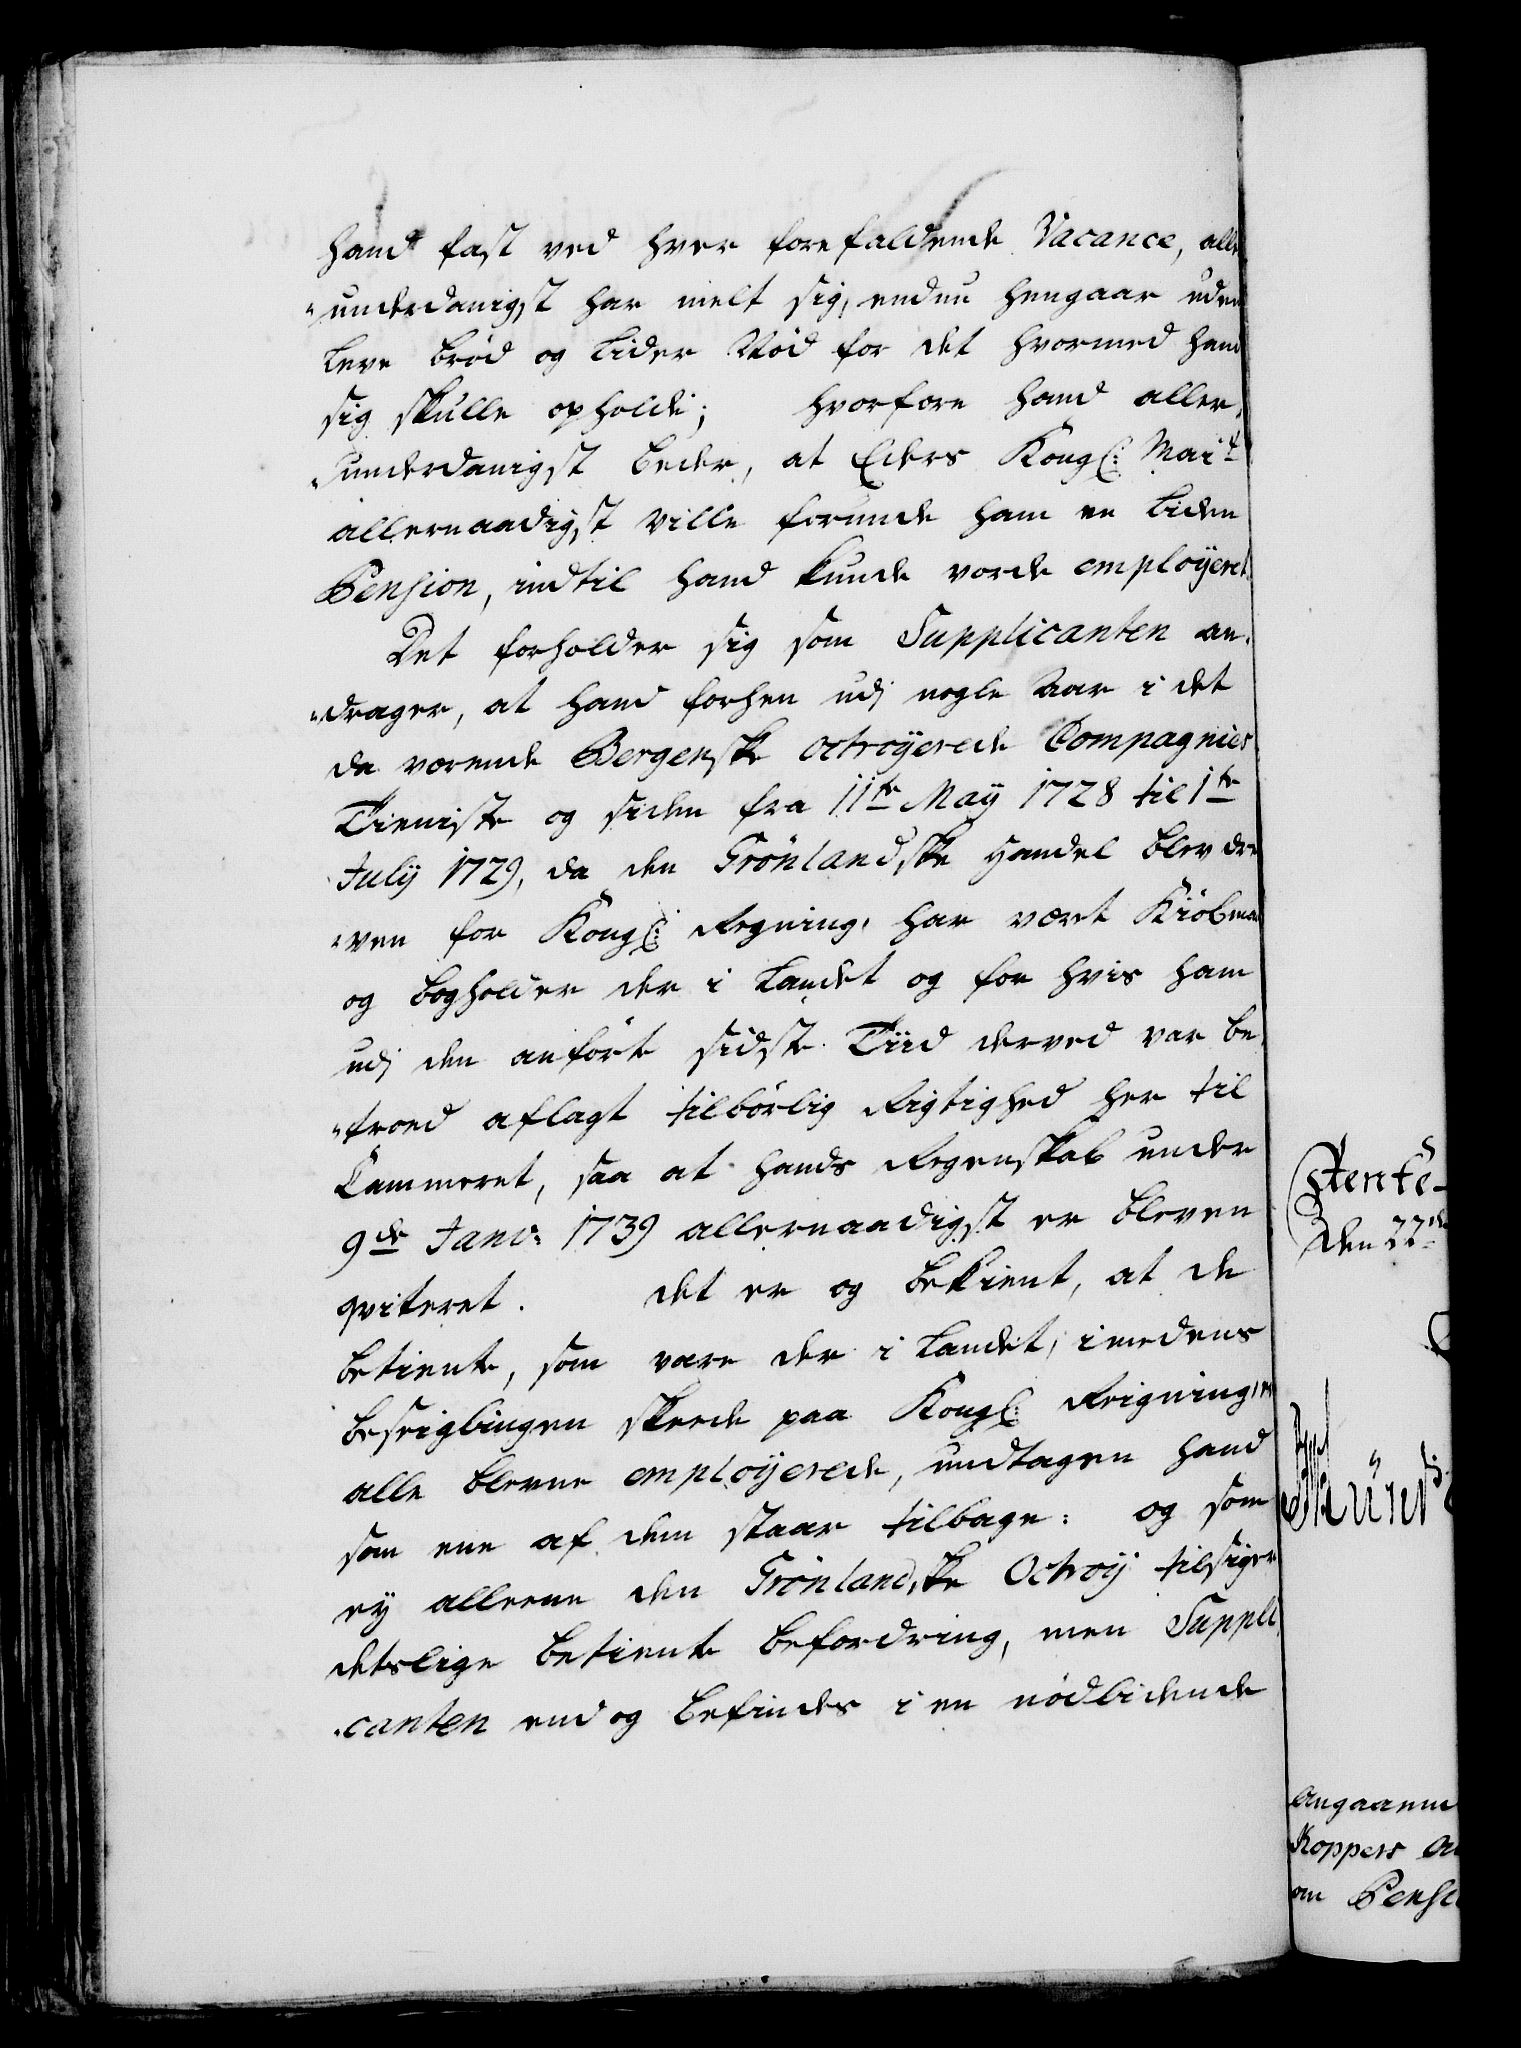 hand fast ved hver forefaldende Vacance, aller
underdanigst har melt sig, endnu hengaar uden
leve brød og lider Nød for det hvormed hand
sig skulle opholde; hvorfore hand aller,
underdanigst beder, at Eders Kongl: Mait
allernaadigst ville forunde ham en liden
Pension, indtil hand kunde vorde employeret.
Det forholder sig som Supplicanten an„
„drager, at hand forhen udj nogle Aar i det
da værende Bergenske octroyerede Compagnies
Tieniste og siden fra 11te May 1728 til 1te
July 1729, da den Grönlandske Handel blev dre
„ven for Kongl: Regning, har været Kiöbmand
og bogholder der i Landet og for hvis ham
udj den anförte sidste Tiid derved var be„
„troed aflagt tilbörlig Rigtighed her til
Cammeret, saa at hands Regenskab under
9de Janv: 1739 allernaadigst er bleven
qviteret. det er og bekient, at de
betiente, som vare der i Landet, imedens
beseiglingen skeede paa Kongl: Reigning, er
alle blevne employerede, undtagen hand
som ene af dem staar tilbage: og som
ey alleene den Grönlandske Octroy tilsiger
deslige betiente befordring, men Suppli„
„canten end og befindes i en nödlidende
Rente-
den 22de
angaaende
Koppers
om Pensi